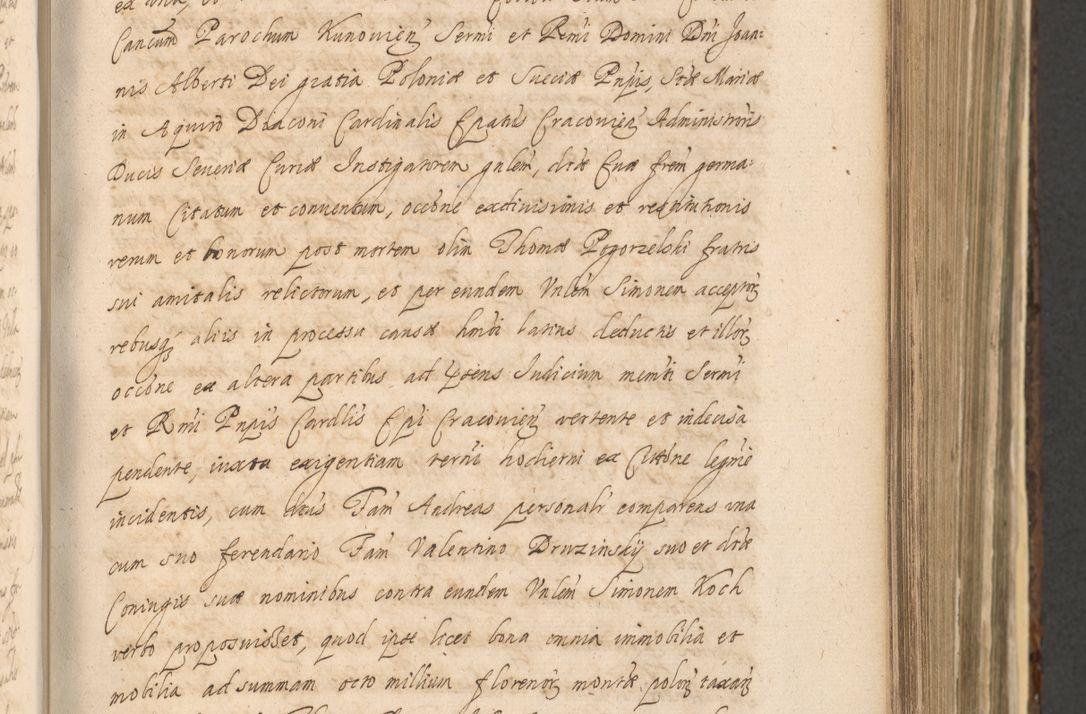 Cancum Parochum Kunovien Sermi et Rmi Domini Dni Joan:
nis Alberti Dei gratia Poloniæ et Sueciæ Pnpis, Stæ Mariæ
in Aquiro Diaconi Cardinalis Epatus Cracovien Administroris
Ducis Severiæ Curiæ Instigatorem gnlem, dtæ Evæ frem germa:
num Citatum et conventum, occone exdivisionis et restitutionis
rerum et bonorum post mortem olim Thomæ Pogorzelski fratris
sui amitalis relictorum, et per eundem Vnlem Simonem acceptor
rebusq aliis in processu causæ hmoi latius deductis et illor
occone ex altera partibus ad pptens Judicium memti Sermi
et Rmi Pnpis Cardlis Epi Cracovien vertente et indecisa
pendente, iuxta exigentiam termi hodierni ex Cittone legme
incidentis, cum dtus Fam Andreas personalr comparens una
cum suo ferendario Fam Valentino Druzinskÿ suo et dtæ
Coniugis suæ nominibus contra eundem Vnlem Simonem Koch
verbo proposuisset, quod ipse licet bona omnia immobilia et
mobilia ad summam octo millium florenor montæ polon taxam